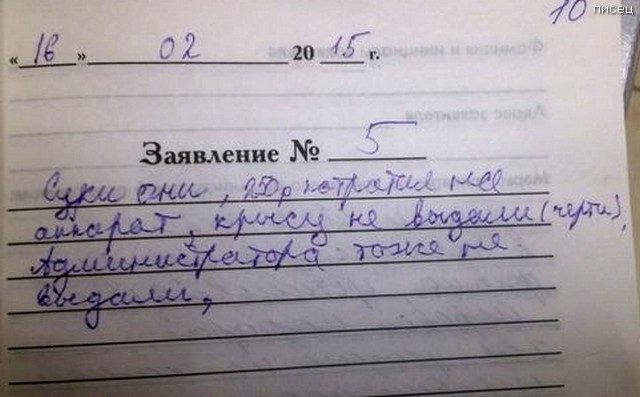 писец
10
« 16 » 02 20 15 г.
Заявление № 5
Суки они, 250р потратил на
аппарат, крысу не выдали (черти),
Администратора тоже не
выдали,